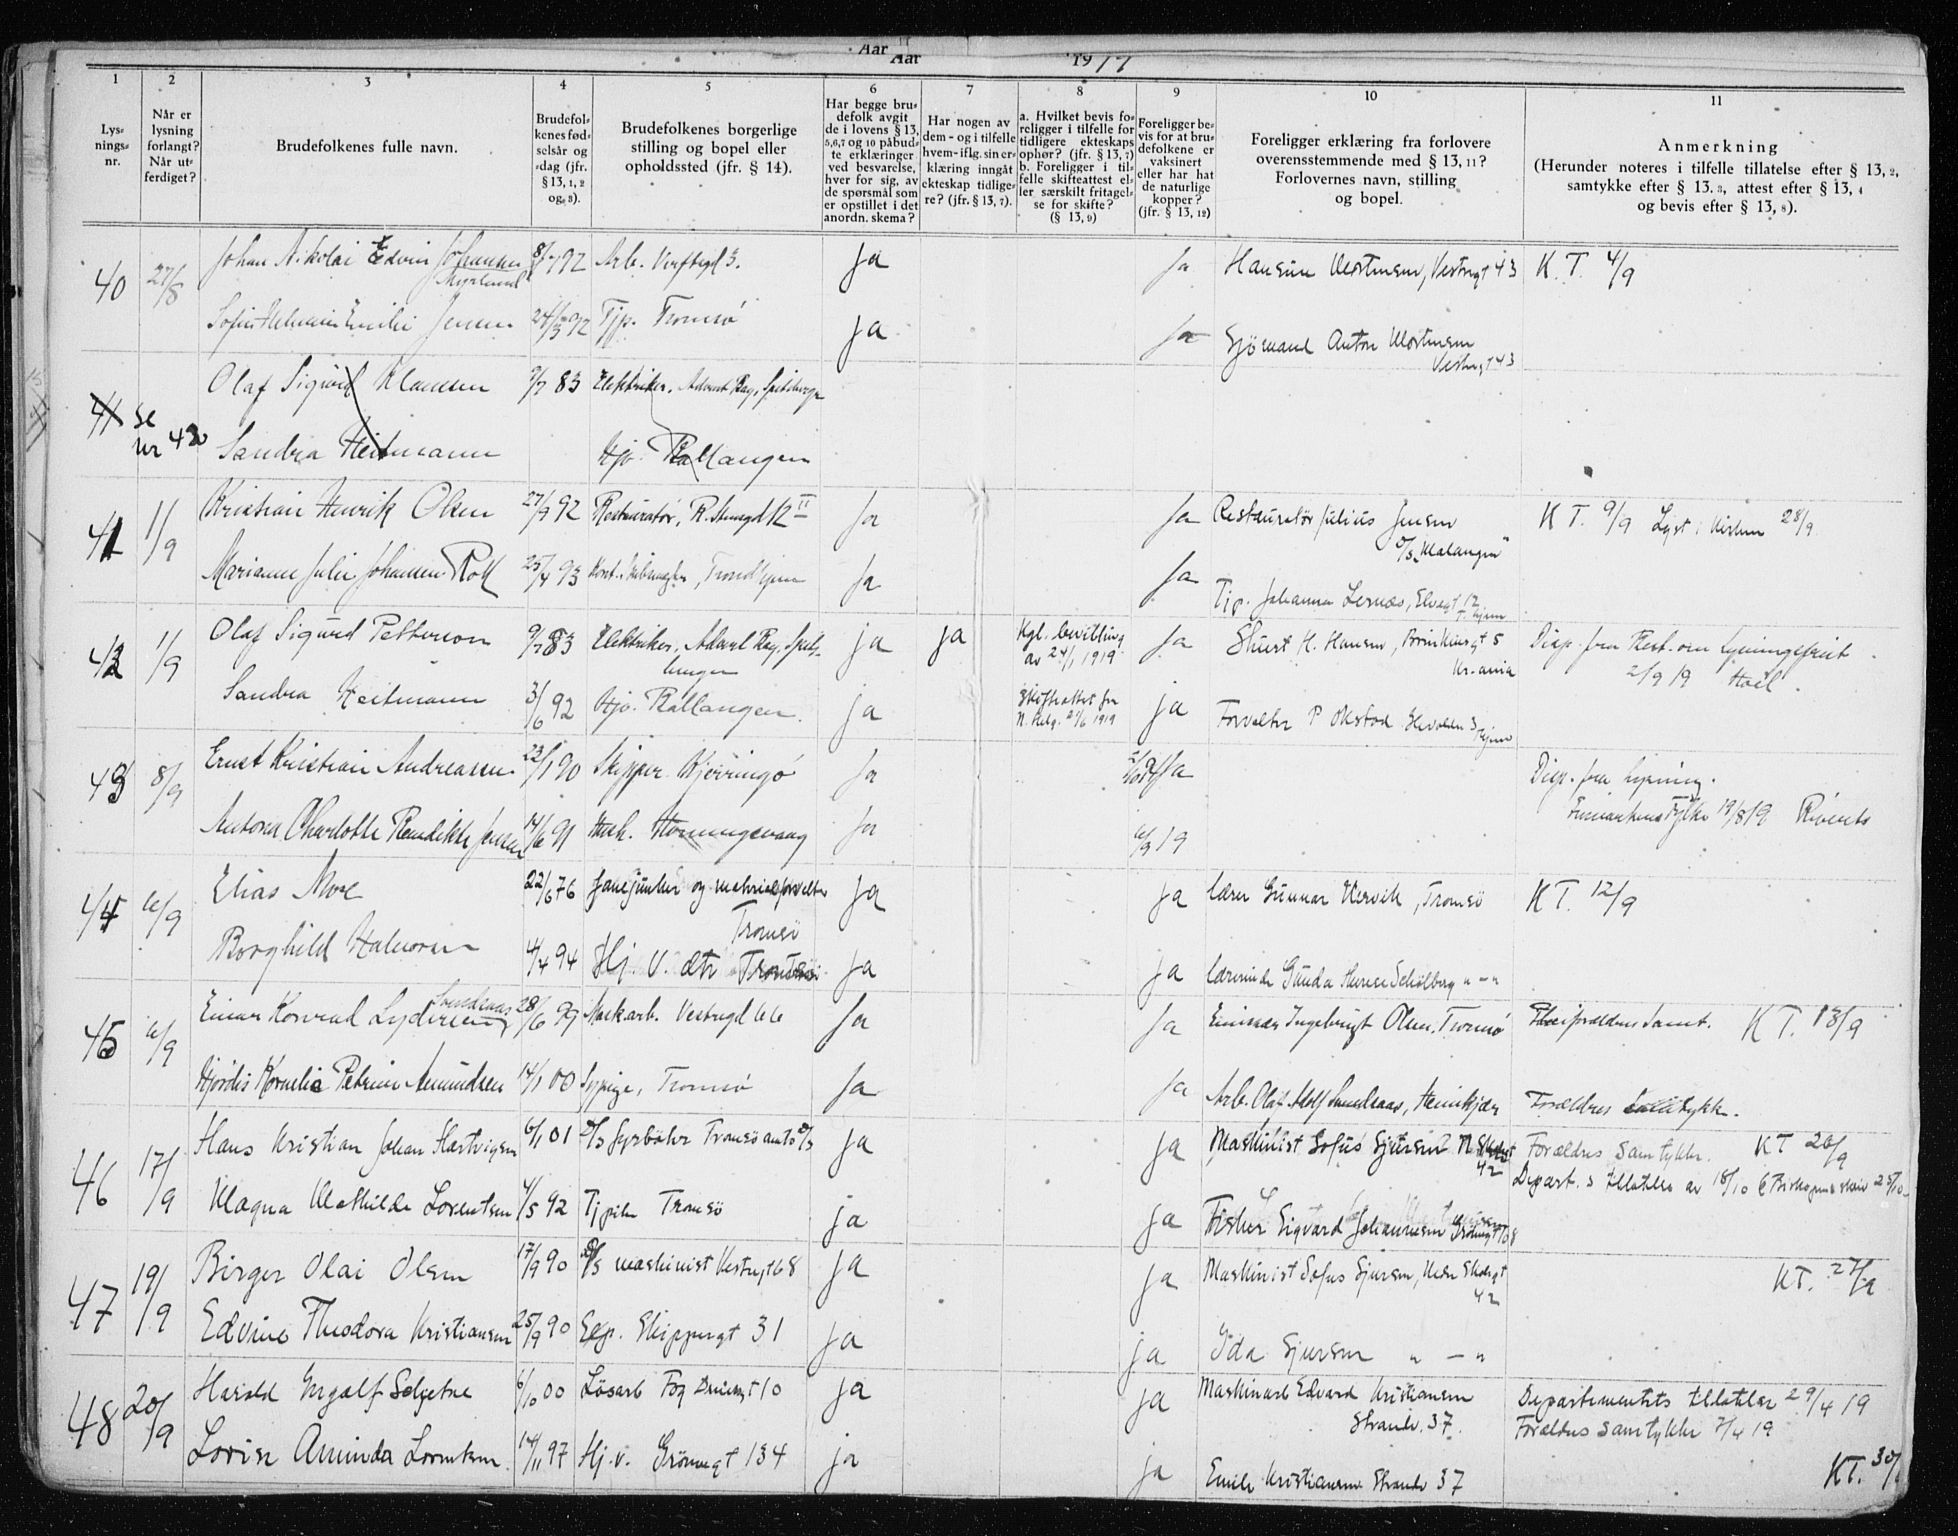 Aar
Aar 1917
1 2 3 4 5 6 7 8 9 10 11
Lys-
nings-
nr.
Når er
lysning
forlangt?
Når ut-
ferdiget?
Brudefolkenes fulle navn.
Brudefol-
kenes fød-
selsår og
-dag (jfr.
§ 13, 1, 2
og 3).
Brudefolkenes borgerlige
stilling og bopel eller
opholdssted (jfr. § 14).
Har begge bru-
defolk avgit
de i lovens § 13,
5,6,7 og 10 påbud-
te erklæringer
ved besvarelse,
hver for sig, av
de spørsmål som
er opstillet i det
anordn. skema?
Har nogen av
dem - og i tilfelle
hvem- iflg. sin er-
klæring inngåt
ekteskap tidlige-
re? (jfr. § 13, 7).
a. Hvilket bevis fo-
religger i tilfelle for
tidligere ekteskaps
ophør? (jfr. § 13, 7)
b. Foreligger i til-
felle skifteattest el-
ler særskilt fritagel-
se for skifte?
(§ 13, 9)
Foreligger be-
vis for at bru-
defolkene er
vaksinert
eller har hat
de naturlige
kopper?
(jfr. § 13, 12)
Foreligger erklæring fra forlovere
overensstemmende med § 13, 11?
Forlovernes navn, stilling
og bopel.
Anmerkning
(Herunder noteres i tilfelle tillatelse efter § 13, 2,
samtykke efter § 13. 3, attest efter § 13, 4
og bevis efter § 13, 8).
40 27/8 Johan Nikolai Edvin Johansen 92 Arb. Verftsgt 3. ja ja Hansine Mortensen, Vestregt 43 K.T. 4/9
Myrland
Sofie Emilie Jensen 92 Tjp. Tromsø ja ja Sjømand Anton Mortensen
Vestregt 43
41 se Olaf Sigurd Klausen 9/7 83 Elektriker. Advent Bay, Spitsbergen
nr 42
Sandra Heitmann Hjv. Ballangen
41 1/9 Kristian Henrik Olsen 27/9 92 Restauratør, R. 12 II ja ja Restauratør Julius Jensen K T. 9/9 Lyst i Kirken 28/9
D/S "Malangen"
Marianne Julie Johansen Roll 25/4 93 Trondhjem ja ja Tjp. Johanna Lernæs, Elvegt 12
T.hjem
42 1/9 Olaf Sigurd Petterson 9/7 83 Elektriker, Advent Bay. Spits- ja ja Kgl. bevilling ja H. Hansen, 5 Disp. fra Best. om lysningsfrist
bergen av 24/1 1919 Kr.ania 2/9 19 Hoel.
Sandra Heitmann 3/6 92 Hjv. Ballangen. ja Skifteattest fra ja Forvalter P Okstad 3 T.hjem
N. Helg. 21/6 1919
43 8/9 Ernst Kristian Andreassen 23/1 90 Skipper Kjerringø ja ja Disp. fra lysning.
Finmarkens Fylke 19/8 19
Antona Charlotte Bendikte Jensen 14/6 91 Hush. Honningsvaag ja 6/9 19
44 6/9 Elias Moe 22/6 76 og materialforvalter ja ja lærer Gunnar Kervik, Tromsø KT. 12/9
Tromsø
Borghild Halvorsen 4/4 94 Hj. v. dtr Tromsø ja ja lærerinde Gunda Therese Schølberg " — "
45 6/9 Einar Konrad Lydersen 28/6 99 Maskarb. Vestregt 66 ja ja Ingebrigt Olsen, Tromsø Samt. KT. 13/9
Svendsaas
Hjørdis Kornelie Petrine Amundsen 14/1 00 Sypige, Tromsø ja ja Arb. Olaf Adolf Svendsaas, Forældres samtykke.
46 17/9 Hans Kristian Johan Hartvigsen 6/1 01 fyrbøter Tromsø ja ja Maskinist Sofus Sjursen N. Skolegt Forældres samtykke. KT 26/9
42 Depart.s tillatelse av 18/10
Magna Mathilde Lorentsen 4/5 92 Tjpike Tromsø ja ja Fisker Sigvard Johannesen Grønnegt 108
47 19/9 Birger Olai Olsen 17/9 90 D/S maskinist Vestregt 68 ja ja Maskinist Sofus Sjursen, Nedr Skolegt KT. 27/9
42
Edvine Theodora Kristiansen 25/9 90 Exp. Skippergt 31 ja ja Ida Sjursen " — "
48 20/9 Harald Ingolf Seljetne 6/10 00 Løsarb Fog Dreiersgt 10 ja ja Maskinarb Edvard Kristiansen Departementets tillatelse 29/4 19
Strandv. 37. Forældres samtykke 7/4 19
Lovise Aminda Lorentsen. 14/11 97 Hj.v. Grønnegt 134 ja ja Emilie Kristiansen Strandv 37 KT. 30/